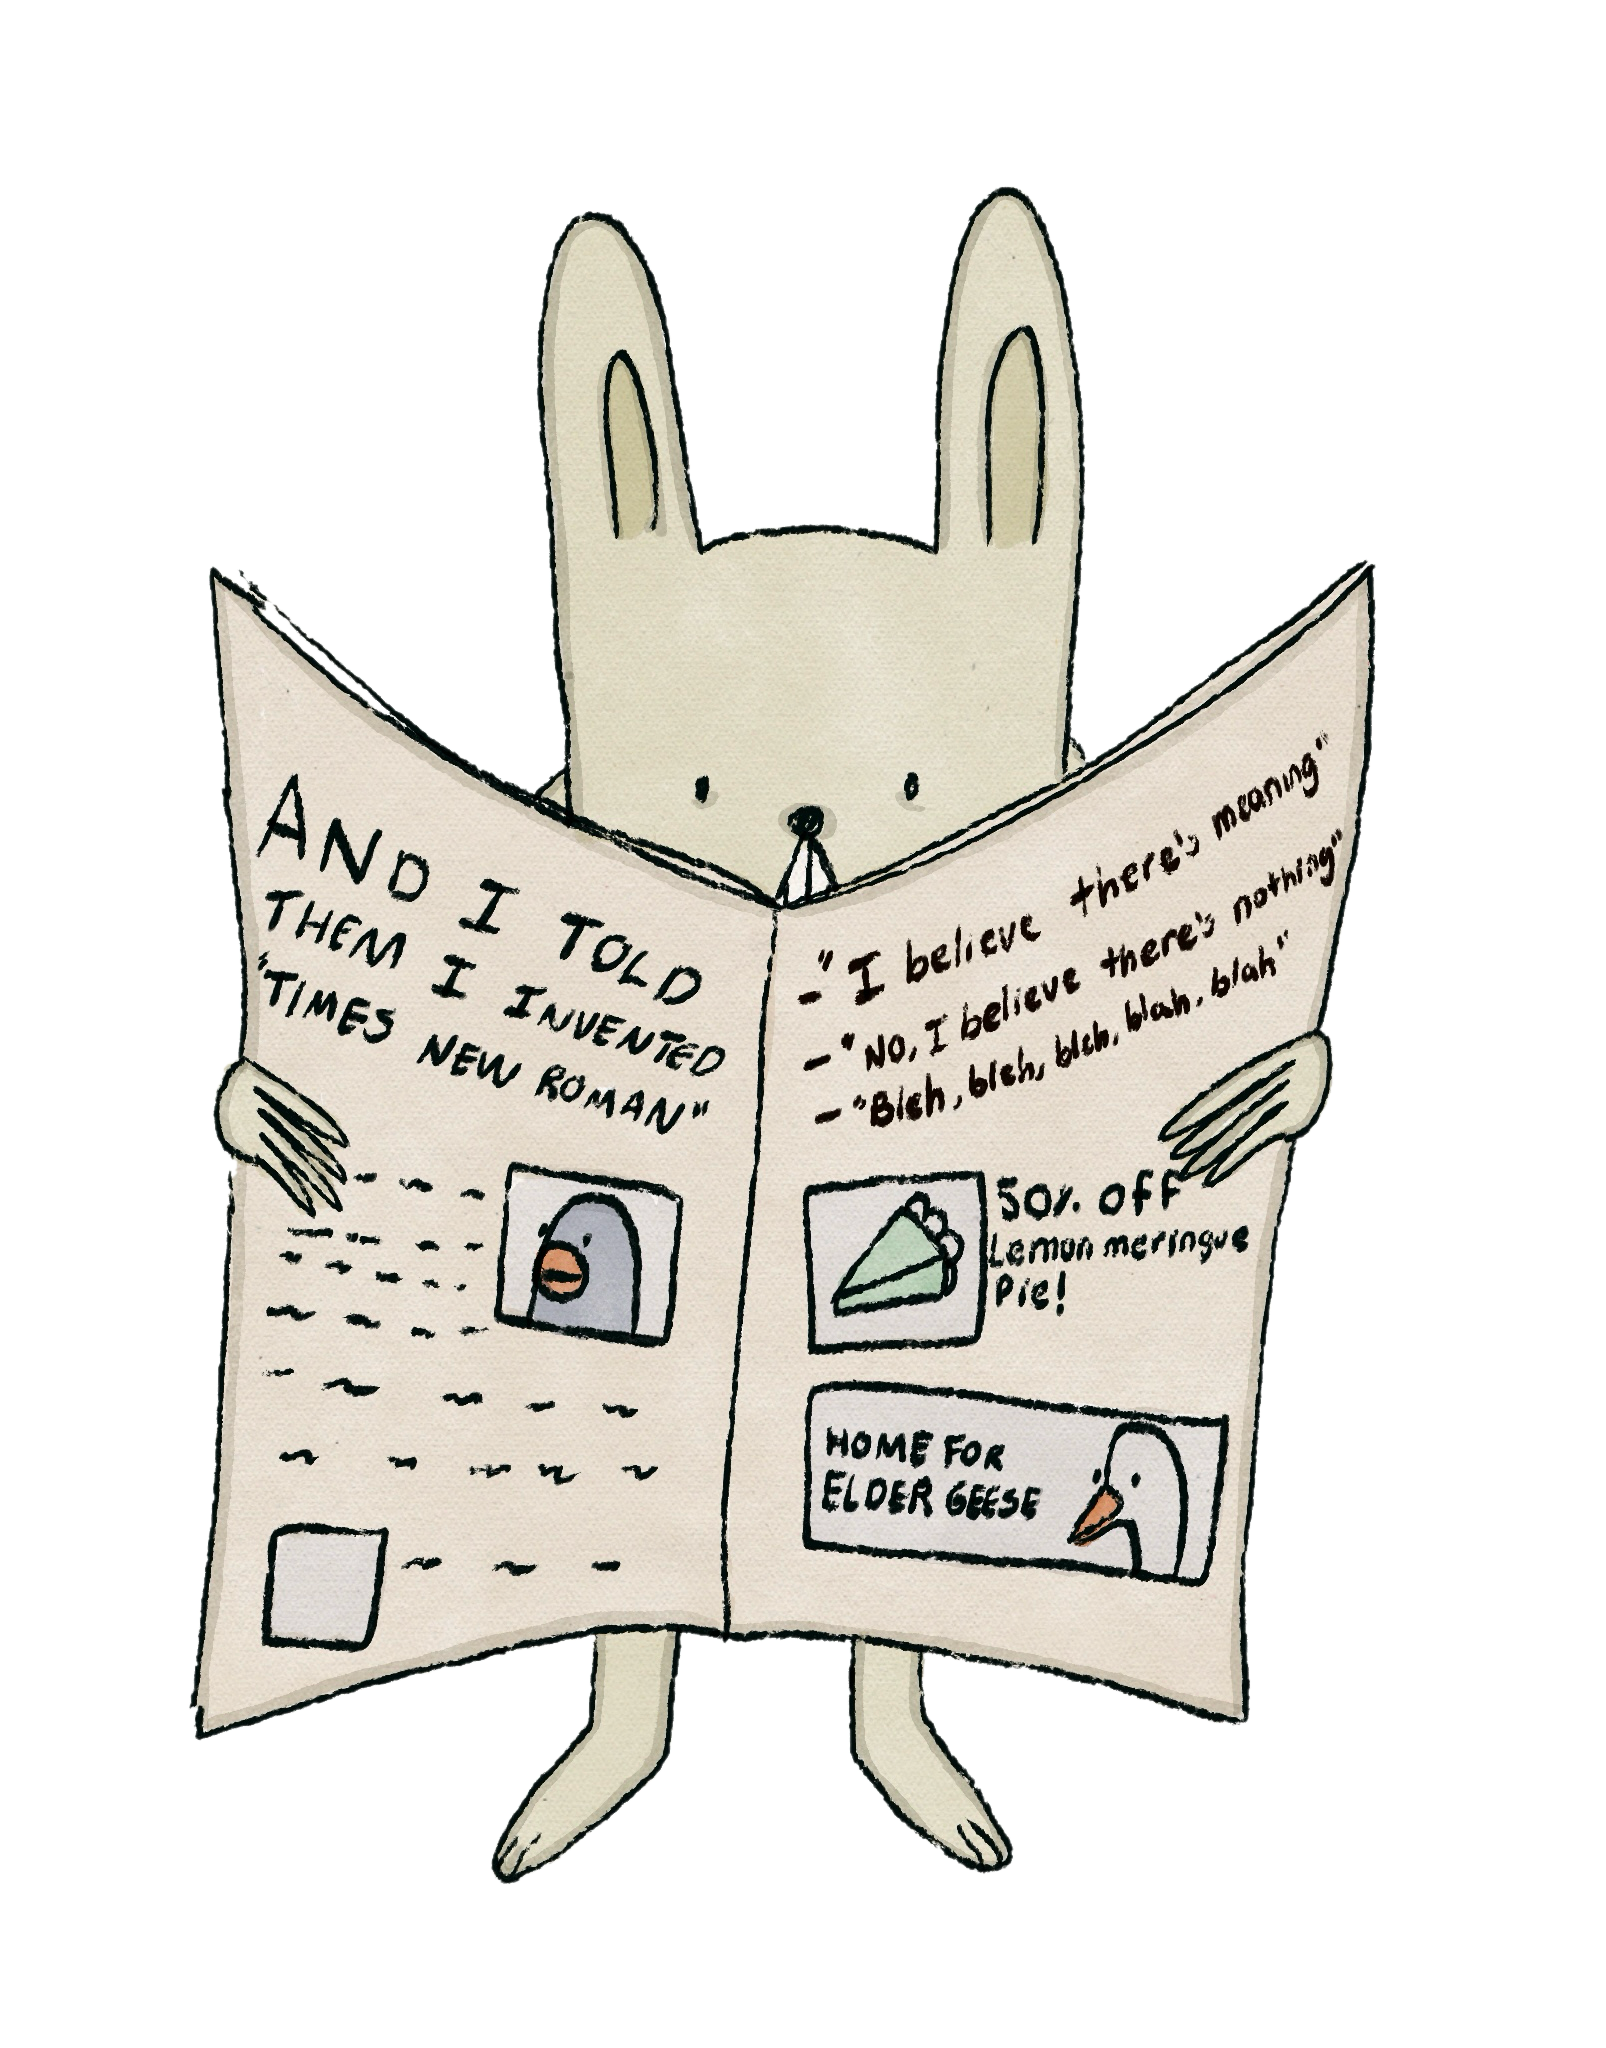 AND I TOLD
THEM I INVENTED
"TIMES NEW ROMAN"
- "I believe there's meaning"
- "NO, I believe there's nothing"
- "Blah, blah, blah, blah, blah"
50% off
Lemon meringue
Pie!
HOME FOR
ELDER GEESE